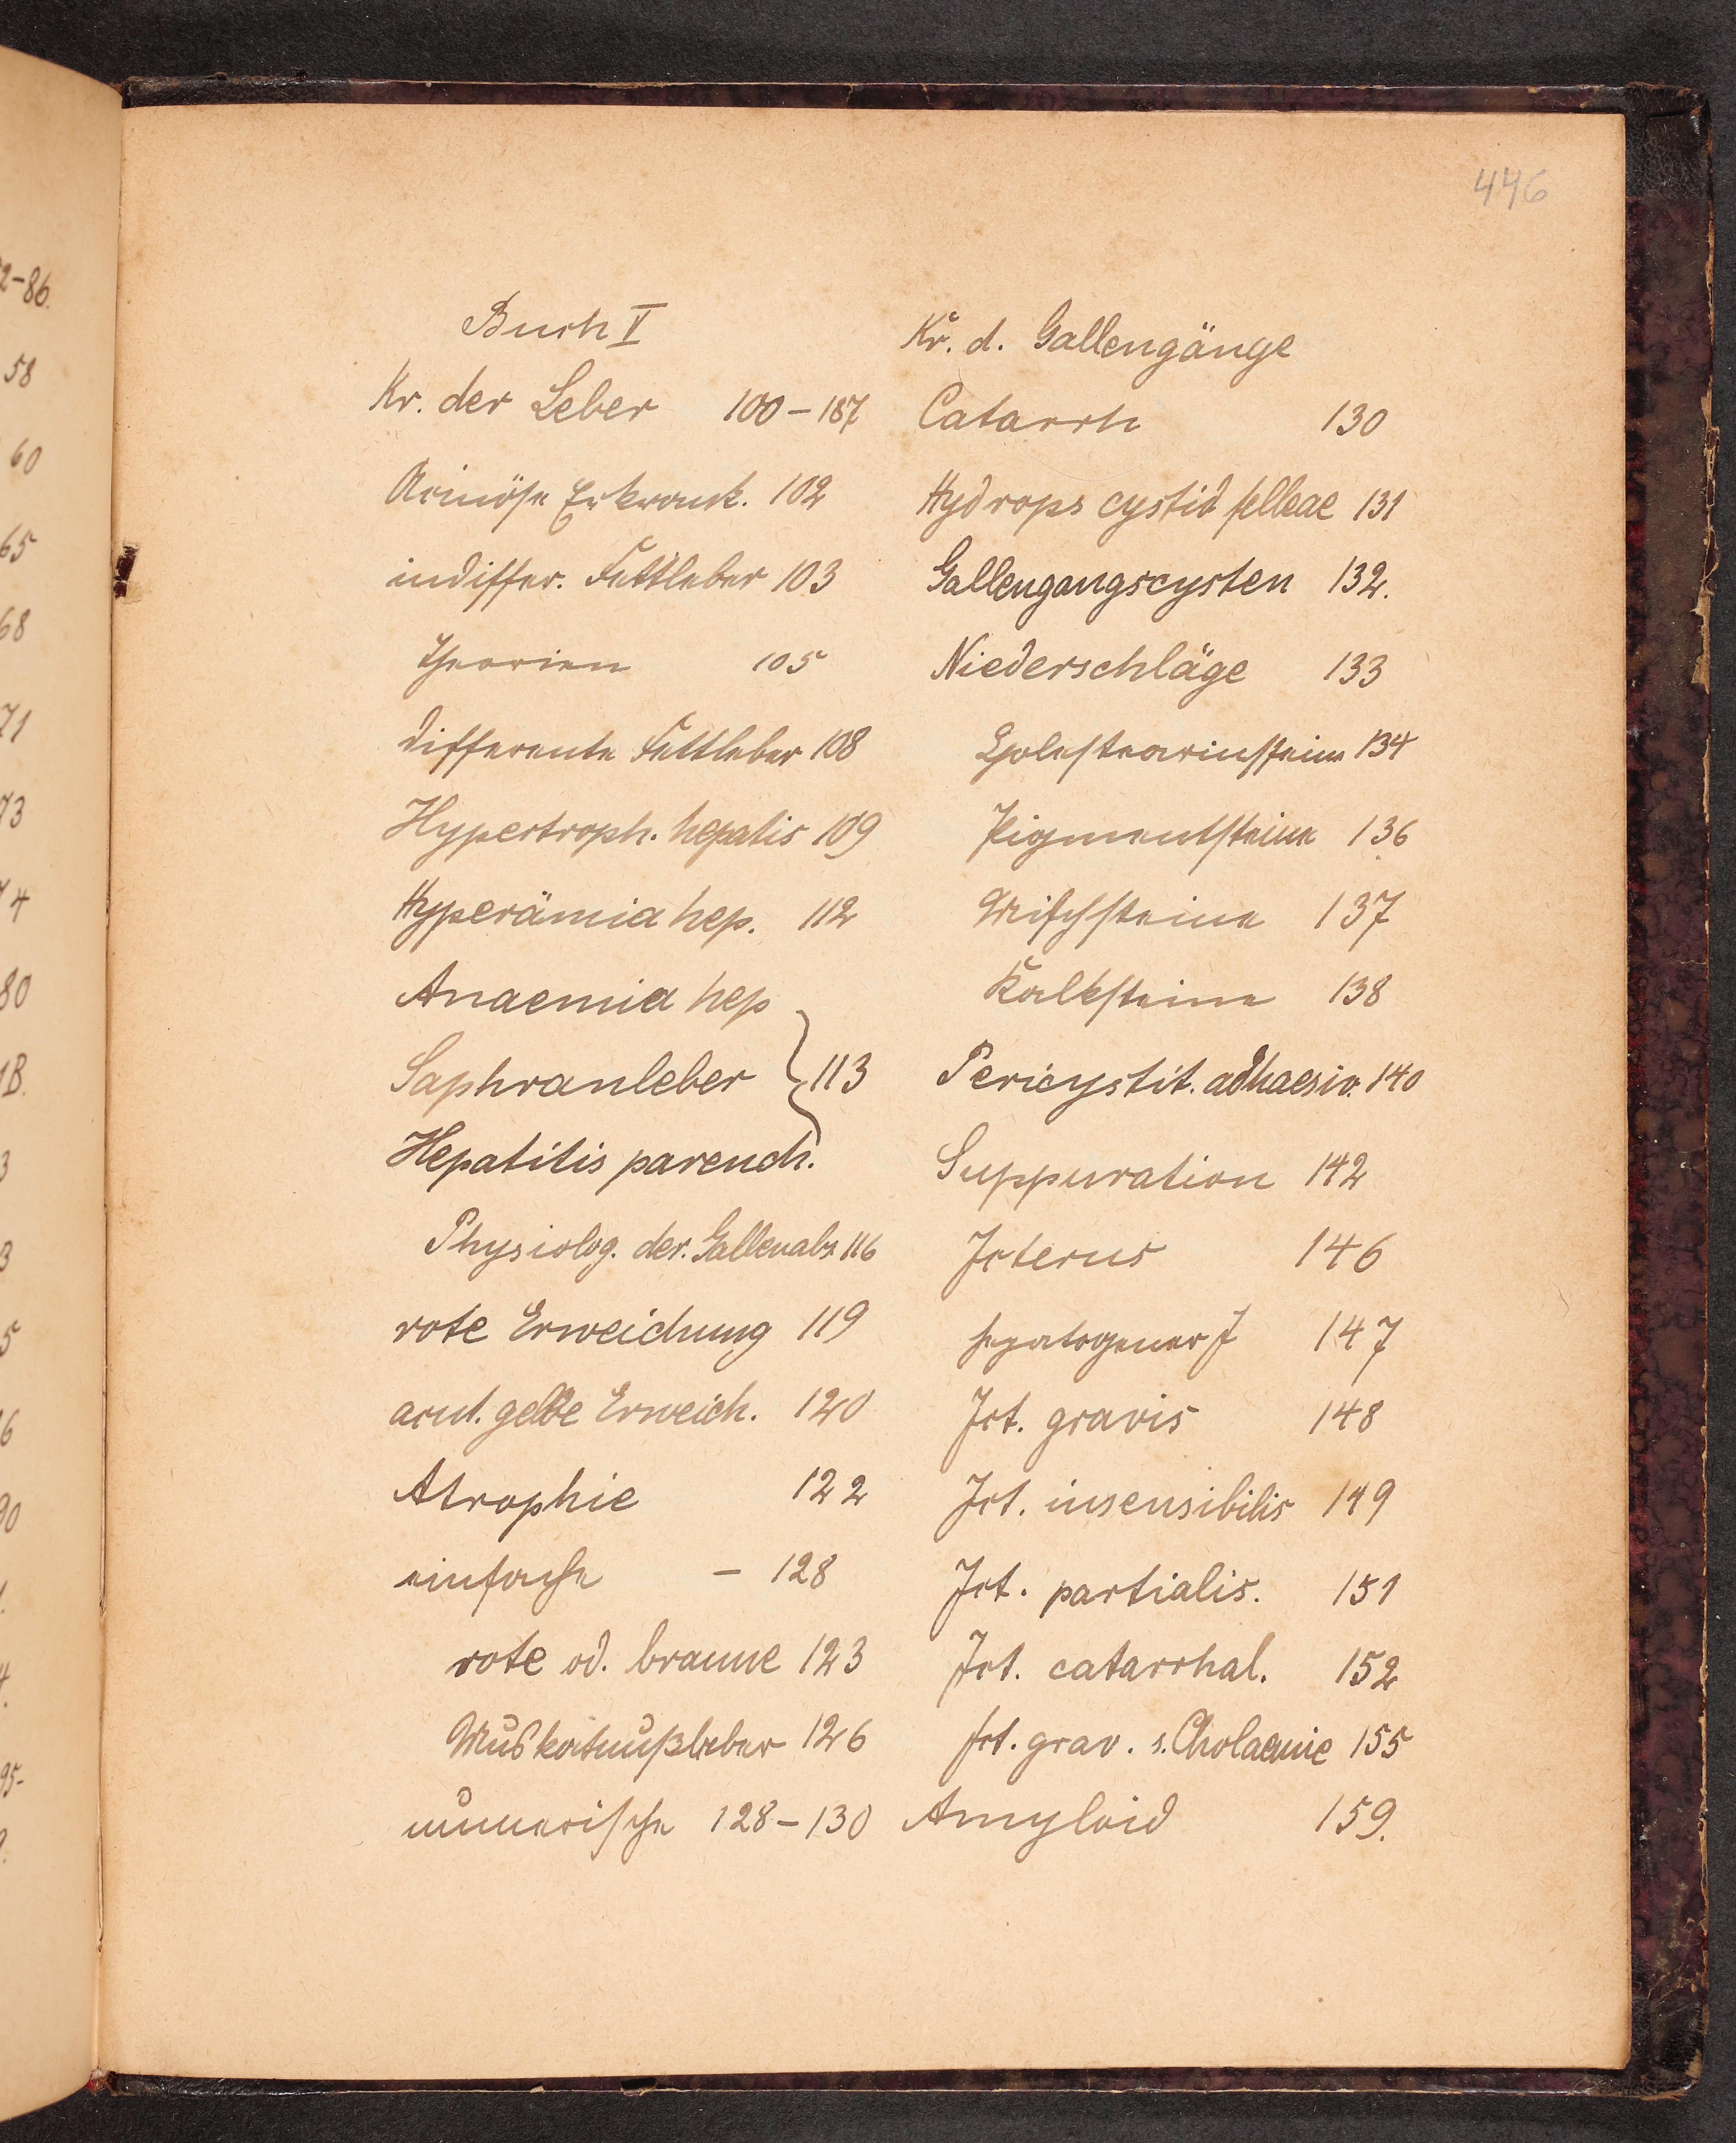 446
Buch V
Kr. der Leber 100-187
Acinöse Erkrank. 102
indiffer. Fettleber 103
Theorien 105
differente Fettleber 108
Hypertroph. hepatis 109
Hyperämia hep. 112
Anaemia hep
Saphranleber } 113
Hepatitis parench.
Physiolog. der. Gallenabs 116
rote Erweichung 119
acut. gelbe Erweich. 120
Atrophie 122
einfache - 128
rote od. braune 123
Muskatnußleber 126
numerische 128-130
Kr. d. Gallengänge
Catarrh 130
Hydrops cystid felleae 131
Gallengangscysten 132.
Niederschläge 133
Cholestearinsteine 134
Pigmentsteine 136
Mischsteine 137
Kalksteine 138
Pericystit. adhaesiv. 140
Suppuration 142
Icterus 146
hepatogener I 147
Ict. gravis 148
Ict. insensibilis 149
Ict. partialis. 151
Ict. catarrhal. 152
Ict. grav. s. Cholaemie 155
Amyloid 159.
2-86.
58
60
65
68
71
73
74
80